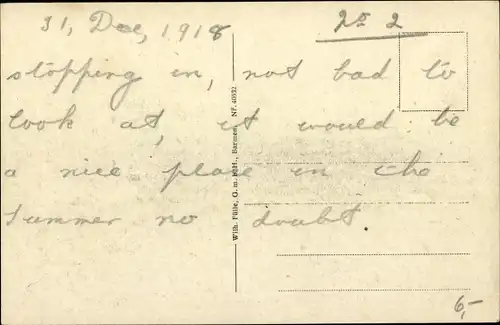 31, Dec, 1918
No 2
stopping in, not bad to
look at, it would be
a nice place in the
Summer no doubt
Wilh. Fülle, G. m. b. H., Barmen. NF. 40532
6,-